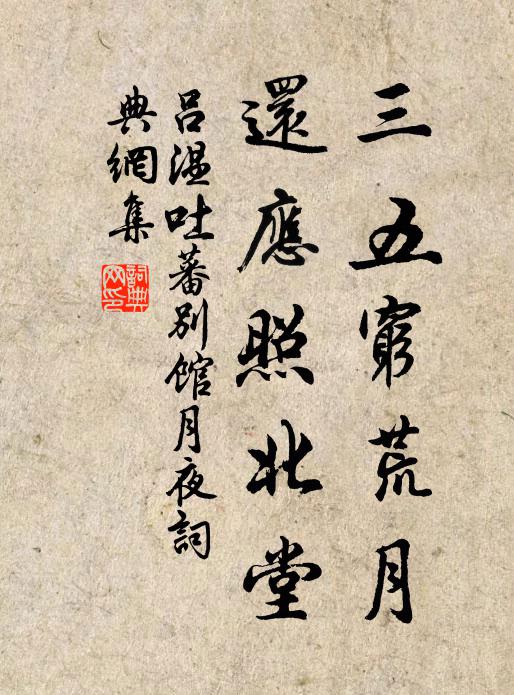 三五窮荒月
還應照北堂
呂溫吐蕃別館月夜詞
典網集
詞典
网印